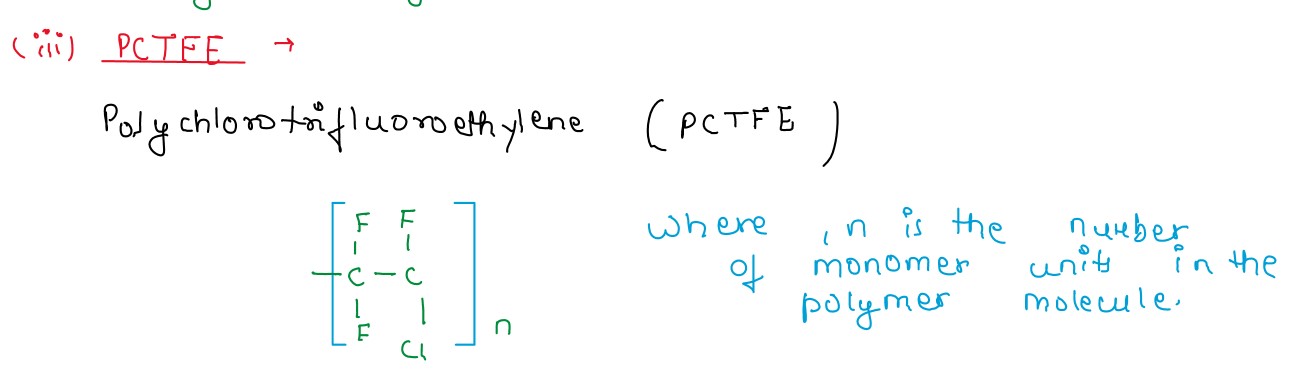 (iii) PCTFE →
Polychlorotrifluoroethylene (PCTFE)
F F
C - C
F
Cl
n
where , n is the number
of monomer units in the
polymer molecule.